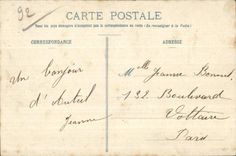 92
CARTE POSTALE
Tous les pays étrangers n'acceptent pas la correspondance au recto. (Se renseigner à la Poste)
CORRESPONDANCE
ADRESSE
Un bonjour
d'Auteuil
Jeanne
Mlle Jeanne
132 Boulevard
Voltaire
Paris